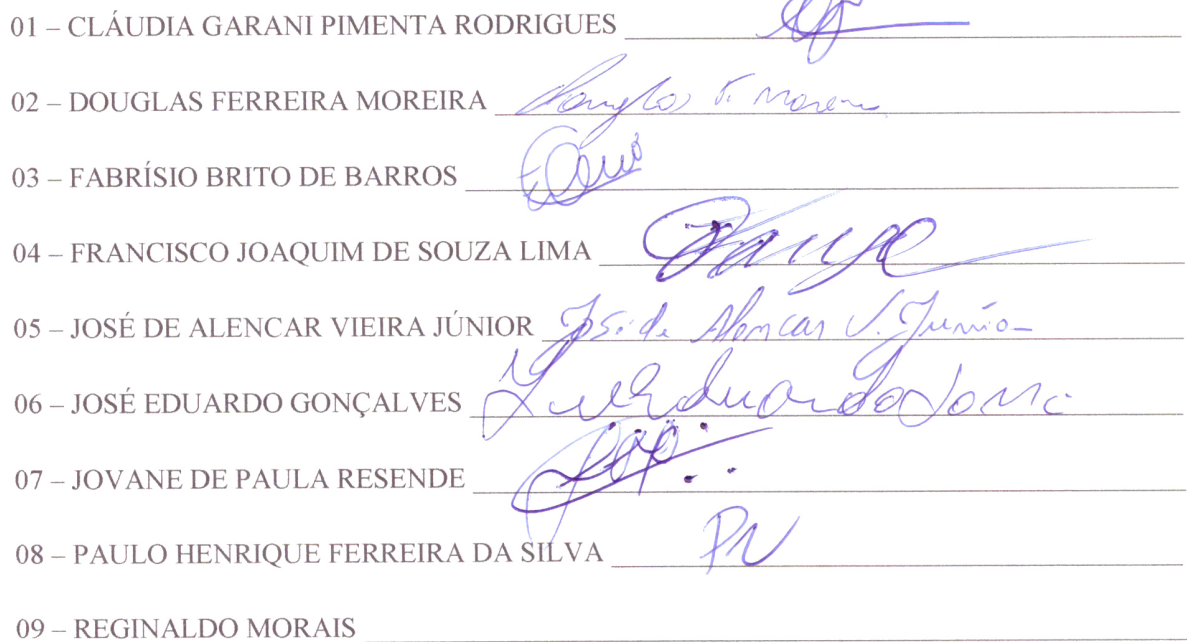 01 – CLÁUDIA GARANI PIMENTA RODRIGUES
02 – DOUGLAS FERREIRA MOREIRA Douglas F. Moreira
03 – FABRÍSIO BRITO DE BARROS
04 – FRANCISCO JOAQUIM DE SOUZA LIMA
05 – JOSÉ DE ALENCAR VIEIRA JÚNIOR José de Alencar V. Júnior
06 – JOSÉ EDUARDO GONÇALVES
07 – JOVANE DE PAULA RESENDE
08 – PAULO HENRIQUE FERREIRA DA SILVA
09 – REGINALDO MORAIS